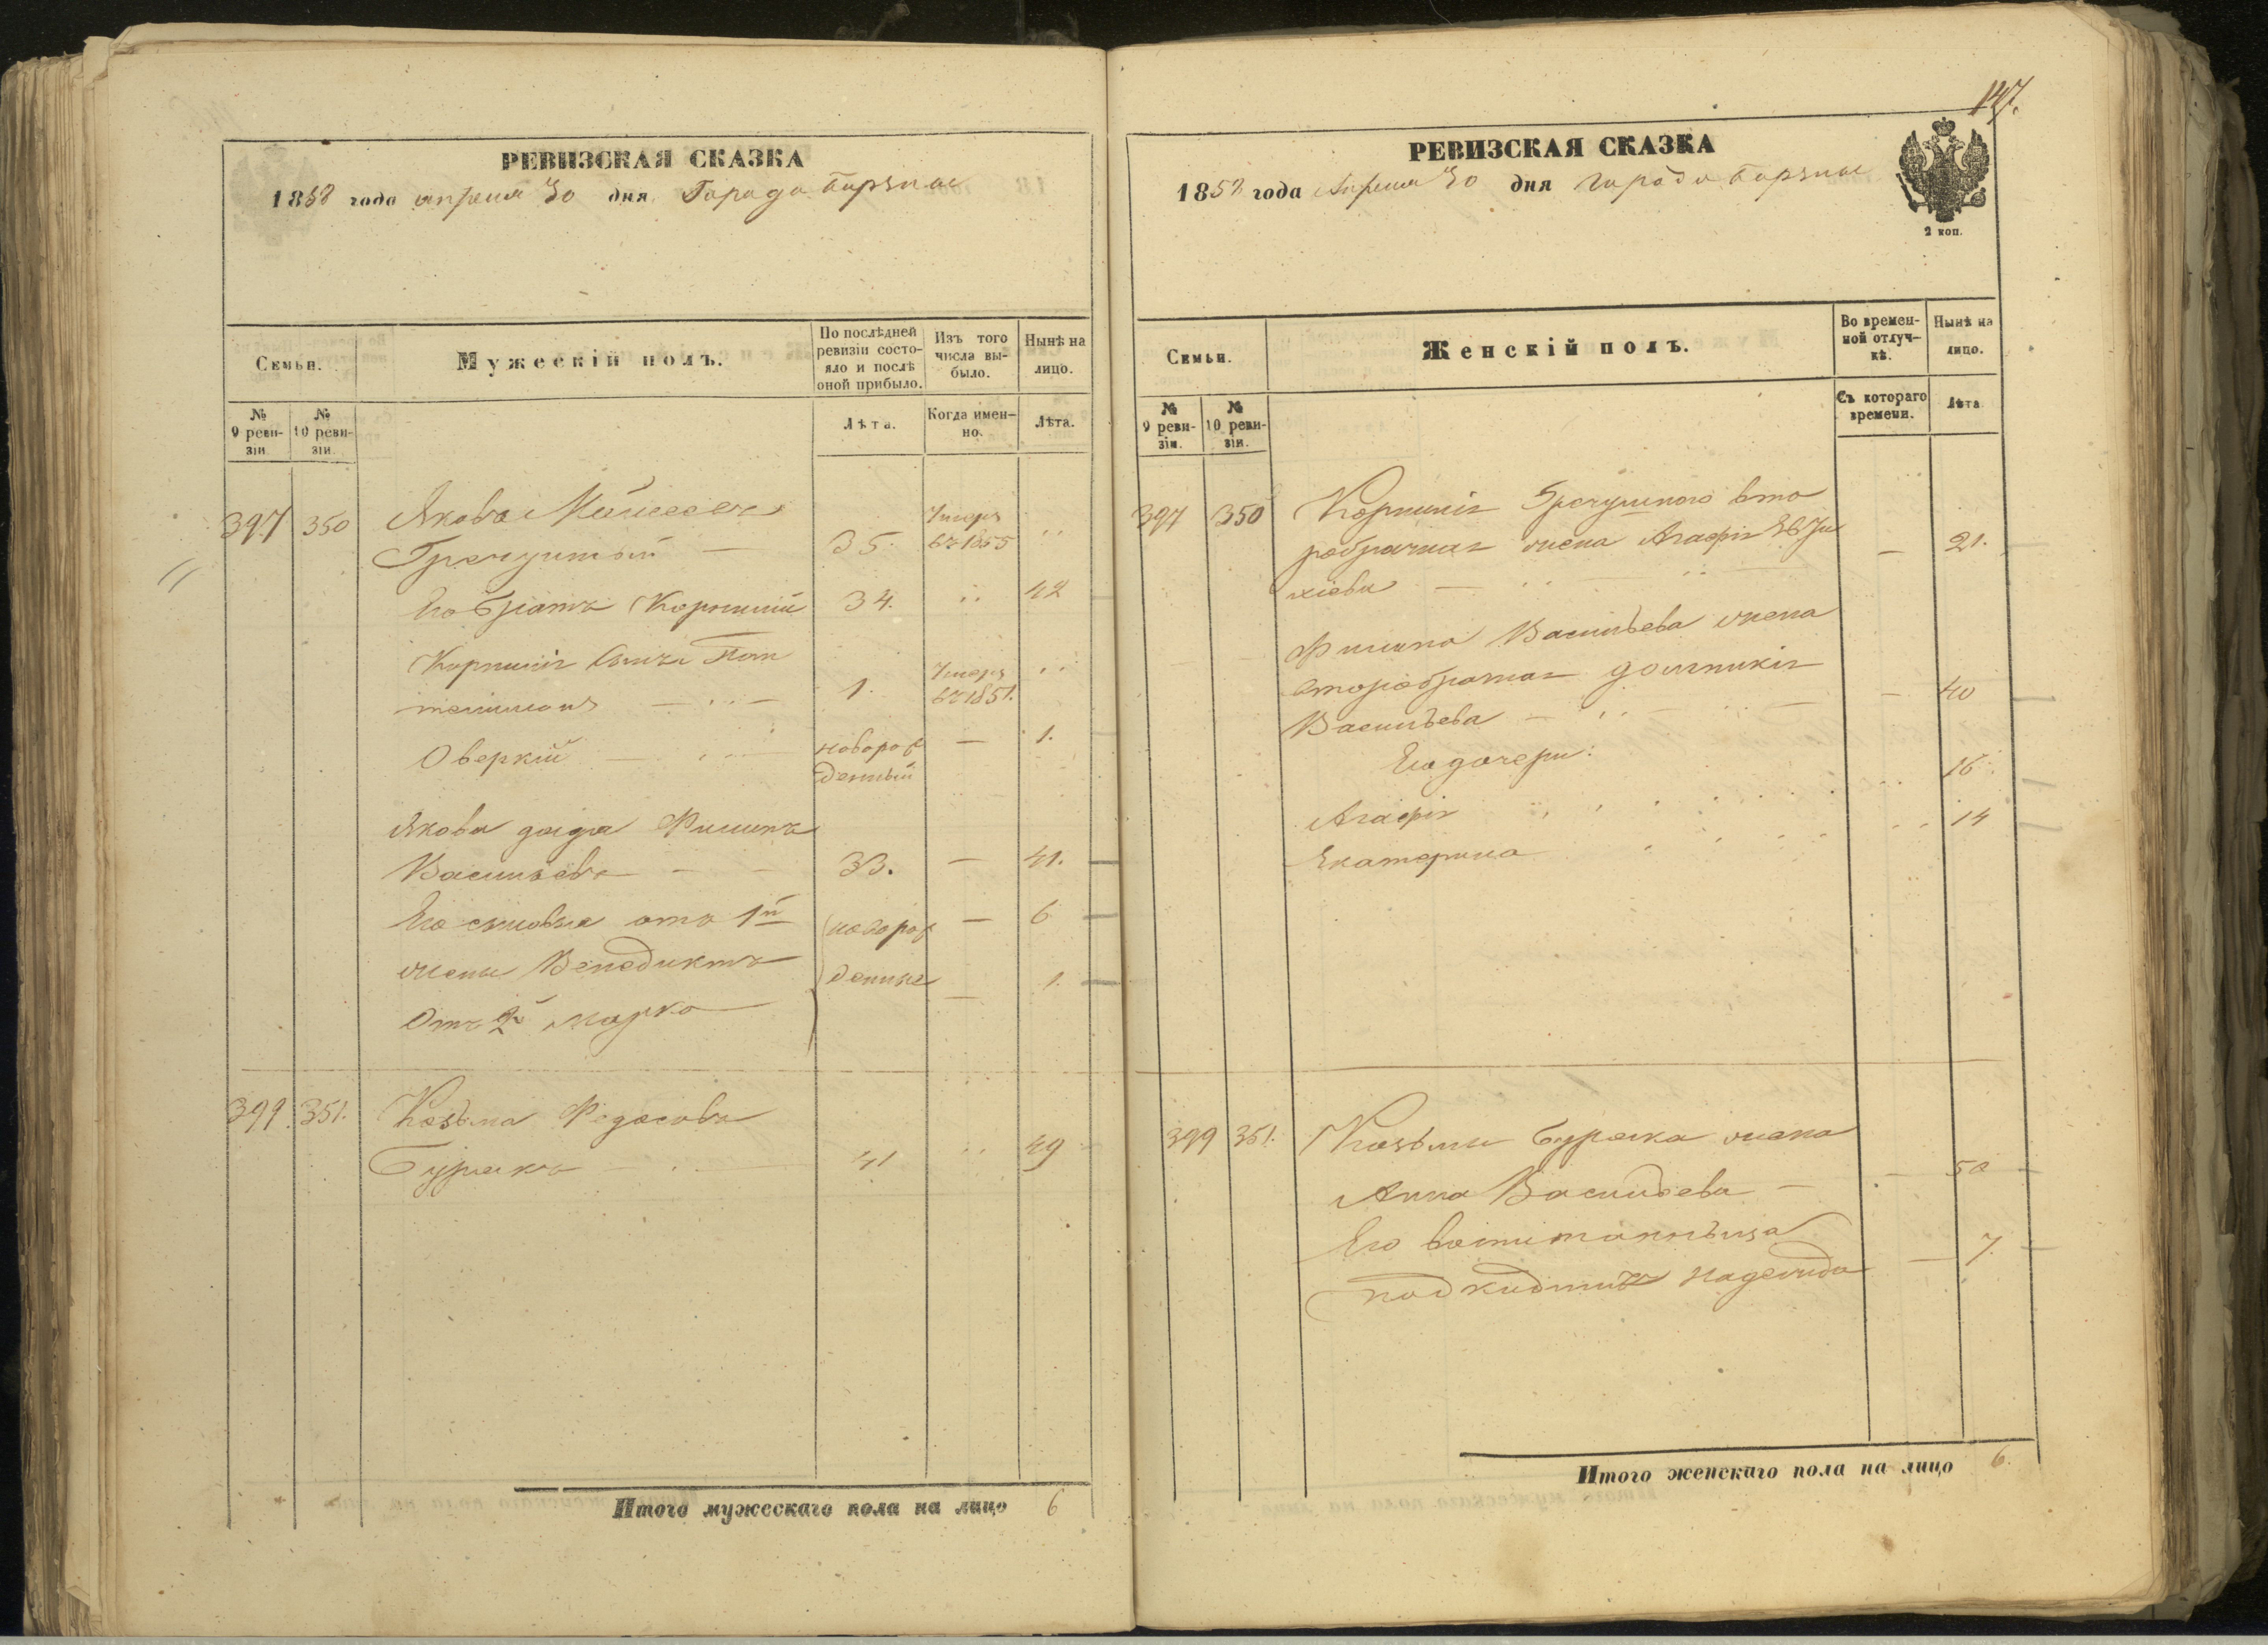 147.
РЕВИЗСКАЯ СКАЗКА
1858 года апреля 30 дня Города Борзны
Семьи.
Мужескій полъ.
По послѣдней ревизіи состояло и послѣ оной прибыло.
Изъ того числа выбыло.
Нынѣ на лицо.
№ 9 ревизіи
№ 10 ревизіи.
Лѣта.
Когда именно.
Лѣта.
397 350 Яковъ Моисеевъ
Гречушный — 35. Умеръ въ 1855
Его братъ Корнилій 34. 42
Корнилія сынъ Пан
телимонъ — 1. Умеръ въ 1851.
Оверкій — новорожденный — 1.
Якова дядя Филипъ
Васильевъ — 33. — 41.
Его сыновья отъ 1й новорож — 6
жены Венедиктъ денные — 1.
Отъ 2й Марко
399. 351. Козьма Федосовъ
Бурякъ — 41 49
Итого мужескаго пола на лицо 6
РЕВИЗСКАЯ СКАЗКА
1858 года Апреля 30 дня Города Борзны
2 коп.
Семьи.
Женскій полъ.
Во временной отлучкѣ.
Нынѣ на лицо.
№ 9 ревизіи.
№ 10 ревизіи.
Съ котораго времени.
Лѣта
397 350 Корнилія Гречушного вто
робрачная жена Агафія
— 21.
Филипа Васильева жена
второбрачная
Васильева — 40
Его дочери:
Агафія 16.
Екатерина 14
399 351. Козьмы Буряка жена
Анна Васильева — 50
Его воспитанница
подкидышъ Надежда — 7.
Итого женскаго пола на лицо 6.